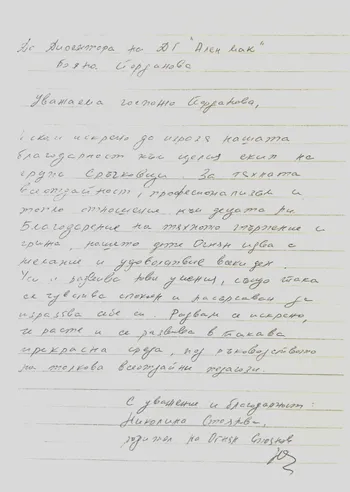 До Директора на ДГ "Ален мак"
Бояна Йорданова
Уважаема госпожо Йорданова,
Искам искрено да изразя нашата
благодарност към целия екип на
група Сръчковци. За тяхната
всеотдайност, професионализъм и
топло отношение към децата ни.
Благодарение на тяхното търпение и
грижа, нашето дете Огнян идва с
желание и удоволствие всеки ден.
Учи и развива нови умения, също така
се чувства спокоен и насърчаван да
изразява себе си. Радвам се искрено,
че расте и се развива в такава
прекрасна среда, под ръководството
на толкова всеотдайни педагози.
С уважение и благодарност:
Николина Стоянова,
родител на Огнян Стоянов